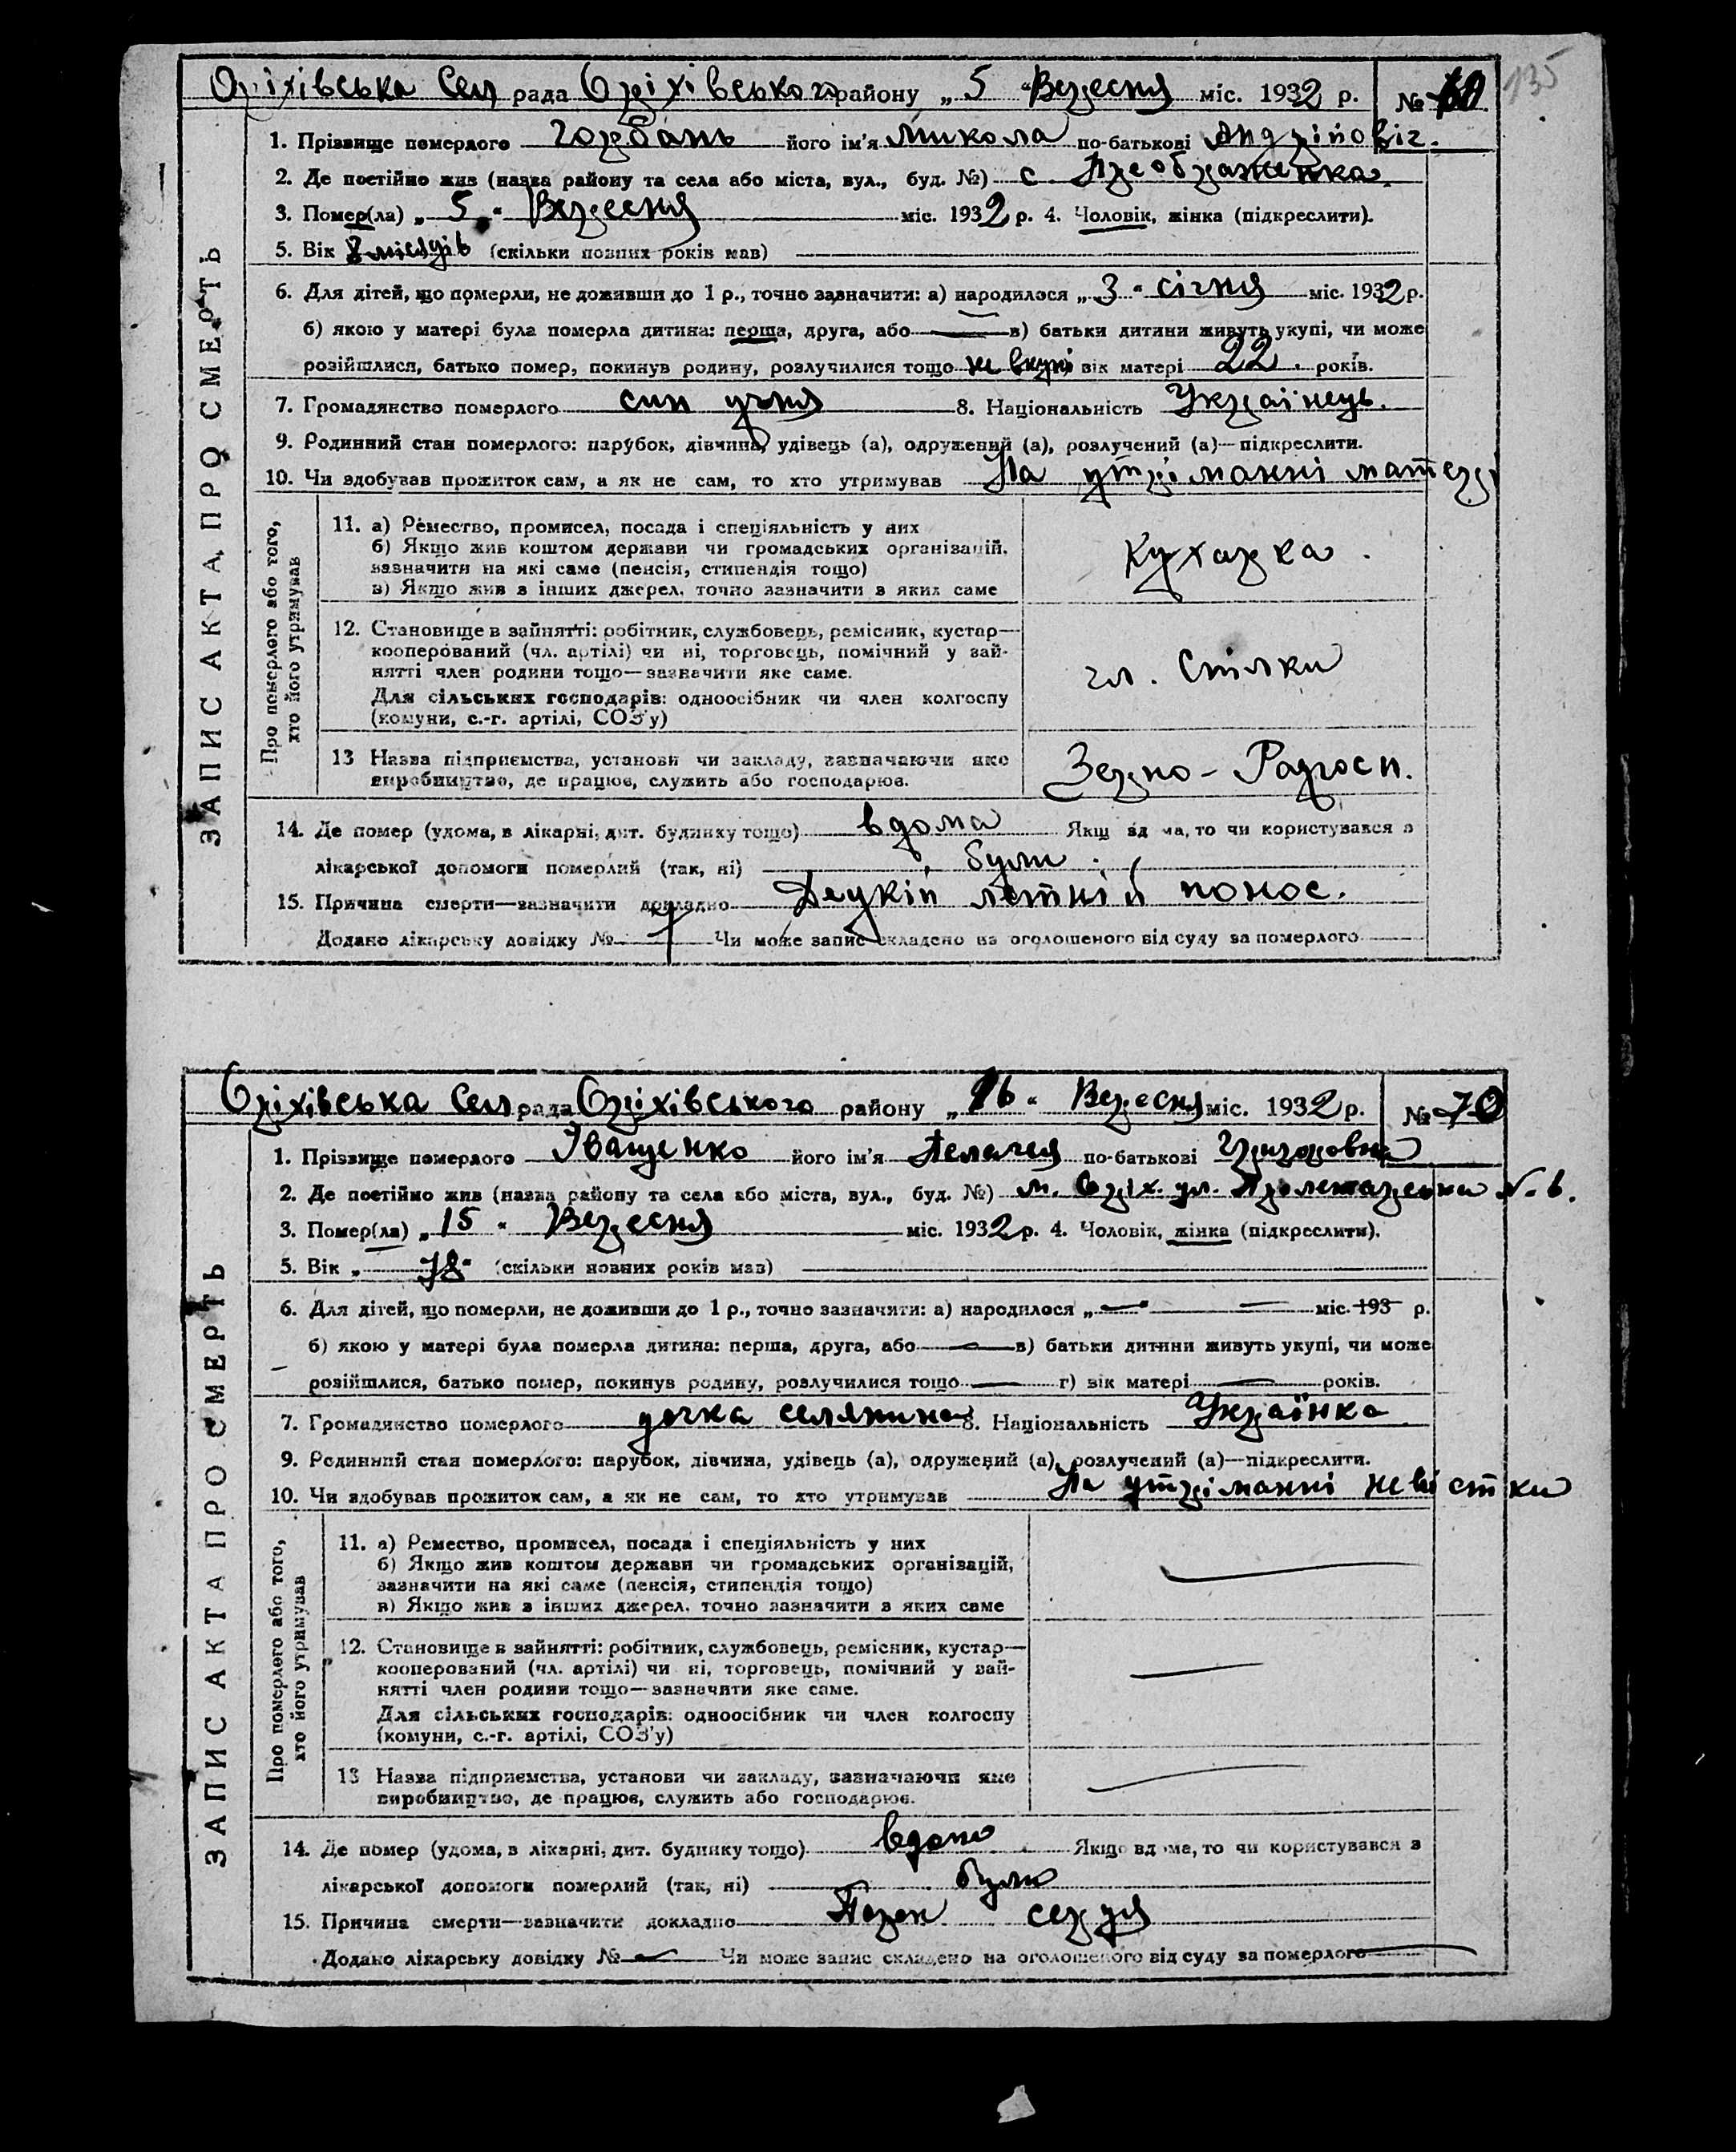 135
Оріхівська Сел рада Оріхівського району „ 5 “ Вересня міс. 1932 р. №
1. Прізвище померлого Горбань його ім'я Микола по-батькові Андрійовіч.
2. Де постійно жив (назва району та села або міста, вул., буд. №) с. Преображенка.
3. Помер(ла) „ 5 “ Вересня міс. 1932 р. 4. Чоловік, жінка (підкреслити).
5. Вік 8 місяців (скільки повних років мав)
6. Для дітей, що померли, не доживши до 1 р., точно зазначити: а) народилося „ 3 “ січня міс. 1932 р.
б) якою у матері була померла дитина: перша, друга, або — в) батьки дитини живуть укупі, чи може
розійшлися, батько помер, покинув родину, розлучилися тощо не вкупі вік матері 22. років.
7. Громадянство померлого син 8. Національність Українець.
9. Родинний стан померлого: парубок, дівчина, удівець (а), одружений (а), розлучений (а)—підкреслити.
10. Чи здобував прожиток сам, а як не сам, то хто утримував На утріманні матері
ЗАПИС АКТА ПРО СМЕРТЬ
Про померлого або того,
хто його утримував
11. а) Ремество, промисел, посада і спеціяльність у них
б) Якщо жив коштом держави чи громадських організацій,
зазначити на які саме (пенсія, стипендія тощо)
в) Якщо жив з інших джерел, точно зазначити з яких саме
Кухарка.
12. Становище в зайнятті: робітник, службовець, ремісник, кустар—
кооперований (чл. артілі) чи ні, торговець, помічний у зай-
нятті член родини тощо—зазначити яке саме.
Для сільських господарів: одноосібник чи член колгоспу
(комуни, с.-г. артілі, СОЗ'у)
чл. Спілки
13 Назва підприємства, установи чи закладу, зазначаючи яке
виробництво, де працює, служить або господарює.
Зерно-Радгосп.
14. Де помер (удома, в лікарні, дит. будинку тощо) вдома Якщ вд ма, то чи користувався з
лікарської допомоги померлий (так, ні) були.
15. Причина смерти—зазначити докладно Децкій летній понос.
Додано лікарську довідку № Чи може запис складено на оголошеного від суду за померлого
Оріхівська Сел рада Оріхівського району „ 16 “ Вересня міс. 1932 р. № 70
1. Прізвище померлого Іващенко його ім'я Пелагея по-батькові Григоровна
2. Де постійно жив (назва району та села або міста, вул., буд. №) м. Оріх. ул. Пролетарська N. 6.
3. Помер(ла) „ 15 “ Вересня міс. 1932 р. 4. Чоловік, жінка (підкреслити).
5. Вік „ 78 “ (скільки повних років мав)
6. Для дітей, що померли, не доживши до 1 р., точно зазначити: а) народилося „ — “ — міс. 193 р.
б) якою у матері була померла дитина: перша, друга, або — в) батьки дитини живуть укупі, чи може
розійшлися, батько помер, покинув родину, розлучилися тощо — г) вік матері — років.
7. Громадянство померлого дочка селянина 8. Національність Українка
9. Родинний стан померлого: парубок, дівчина, удівець (а), одружений (а), розлучений (а)—підкреслити.
10. Чи здобував прожиток сам, а як не сам, то хто утримував На утріманні невістки
ЗАПИС АКТА ПРО СМЕРТЬ
Про померлого або того,
хто його утримував
11. а) Ремество, промисел, посада і спеціяльність у них
б) Якщо жив коштом держави чи громадських організацій,
зазначити на які саме (пенсія, стипендія тощо)
в) Якщо жив з інших джерел, точно зазначити з яких саме
12. Становище в зайнятті: робітник, службовець, ремісник, кустар—
кооперований (чл. артілі) чи ні, торговець, помічний у зай-
нятті член родини тощо—зазначити яке саме.
Для сільських господарів: одноосібник чи член колгоспу
(комуни, с.-г. артілі, СОЗ'у)
13 Назва підприємства, установи чи закладу, зазначаючи яке
виробництво, де працює, служить або господарює.
14. Де помер (удома, в лікарні, дит. будинку тощо) вдома Якщо вд ма, то чи користувався з
лікарської допомоги померлий (так, ні) було
15. Причина смерти—зазначити докладно Порок серця
Додано лікарську довідку № — Чи може запис складено на оголошеного від суду за померлого —